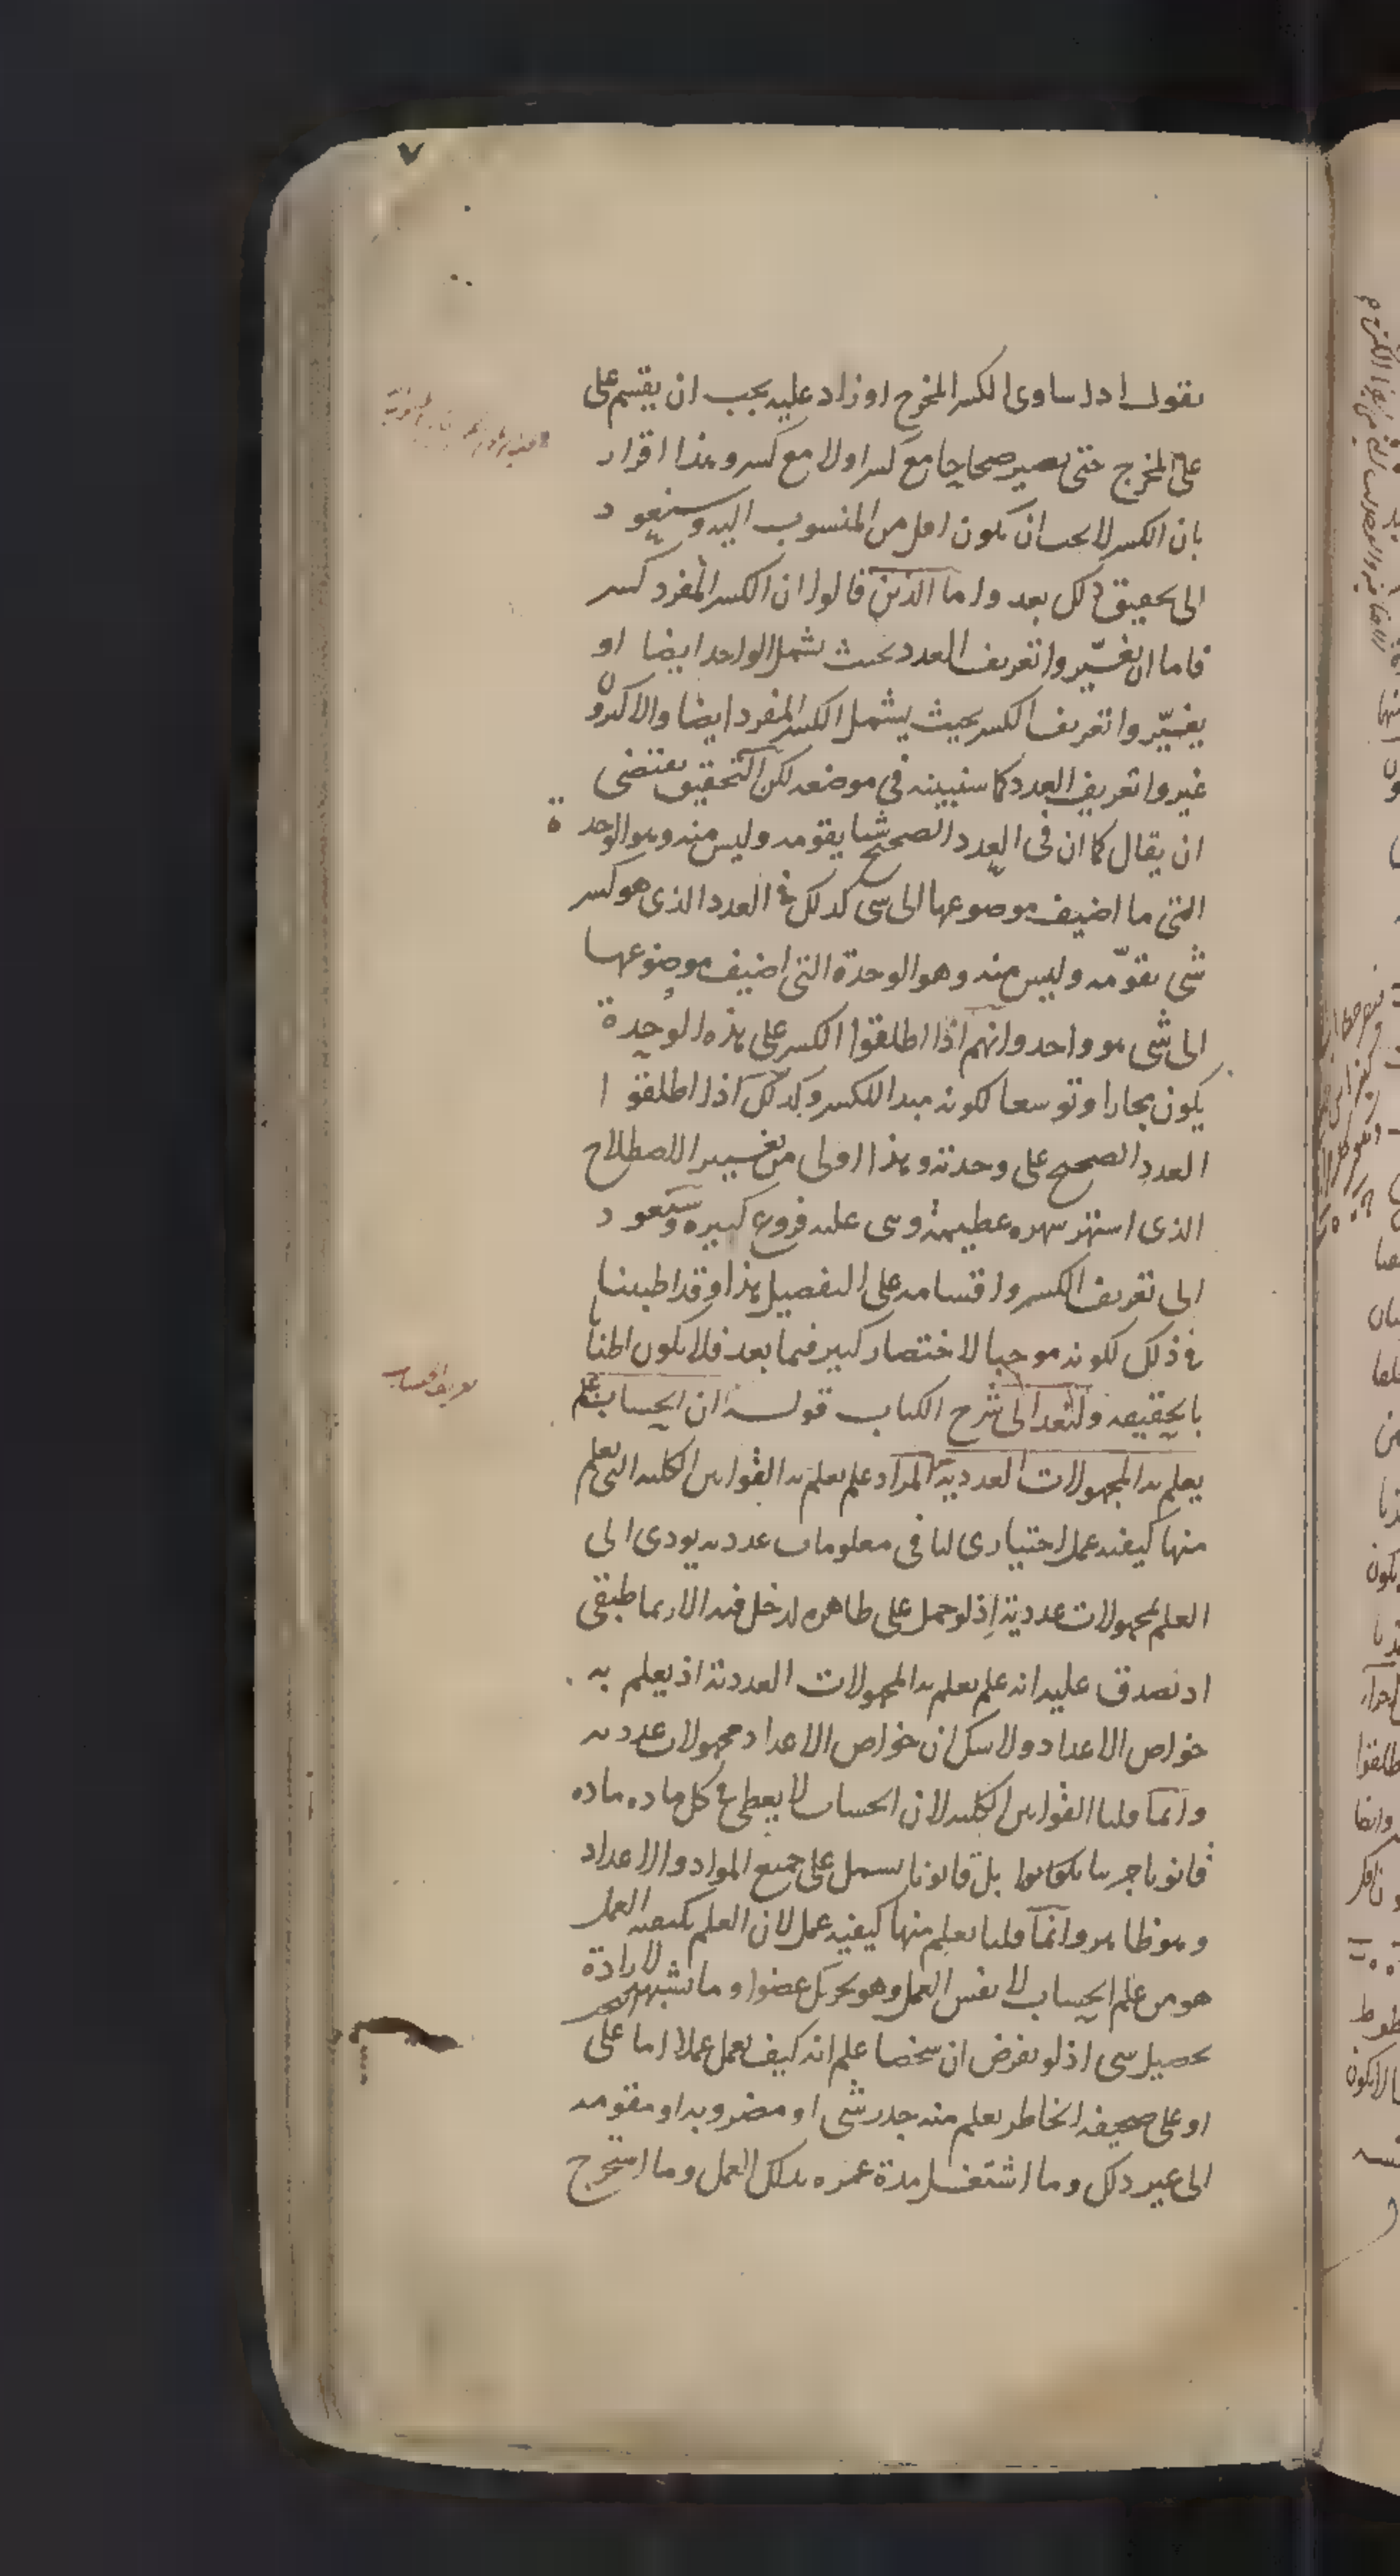 ٧
نقول اذا ساوى الكسر المخرج او زاد عليه يجب ان يقسم على
على المخرج حتى يصير صحاحا مع كسر او لا مع كسر وهذا اقرار
بان الكسر لا يجب ان يكون اقل من المنسوب اليه وسنعود
الى تحقيق ذلك بعد واما الذين قالوا ان الكسر المفرد كسر
فاما ان يغيّروا تعريف العدد بحيث يشمل الواحد ايضا او
يغيّروا تعريف الكسر بحيث يشمل الكسر المفرد ايضا والاكثرون
غيروا تعريف العدد كما سنبينه في موضعه لكن التحقيق يقتضى
ان يقال كما ان في العدد الصحيح شيا يقومه وليس منه وهو الوحدة
التي ما اضيف موضوعها الى شى كذلك في العدد الذى هو كسر
شى يقوّمه وليس منه وهو الوحدة التي اضيف موضوعها
الى شى هو واحد وانهم اذا اطلقوا الكسر على هذه الوحدة
يكون مجازا وتوسعا لكونه مبدا للكسر وكذلك اذا اطلقوا
العدد الصحيح على وحدته وهذا اولى من تغيير الاصطلاح
الذى اشتهر شهره عظيمة وبنى عليه فروع كثيره وسنعود
الى تعريف الكسر واقسامه على التفصيل هذا وقد اطنبنا
في ذلك لكونه موجبا لاختصار كثير فيما بعد فلا يكون اطنابا
بالحقيقه ولنعد الى شرح الكتاب قوله ان الحساب علم
يعلم به المجهولات العددية المراد علم يعلم به القوانين الكليه التى يعلم
منها كيفيه عمل اختيارى لنا في معلومات عدديه يودى الى
العلم بمجهولات عددية اذ لو حمل على ظاهره لدخل فيه الارثماطيقى
اذ يصدق عليه انه علم يعلم به المجهولات العددية اذ يعلم به
خواص الاعداد ولا شك ان خواص الاعداد مجهولات عدديه
وانما قلنا القوانين الكليه لان الحساب لا يعطى في كل ماده ماده
قانونا جزييا بل قانونا يشمل على جميع المواد والاعداد
وهو ظاهر وانما قلنا يعلم منها كيفيه عمل لان العلم بكيفيه العمل
هو من علم الحساب لا نفس العمل وهو تحريك عضو او ما يشبهه لارادة
تحصيل شى اذ لو نفرض ان شخصا علم انه كيف يعمل عملا اما على
او على صحيفه الخاطر يعلم منه جذر شى او مضروبه او مقومه
الى غير ذلك وما اشتغل مدة عمره بذلك العمل وما استخرج
تعريف الحساب